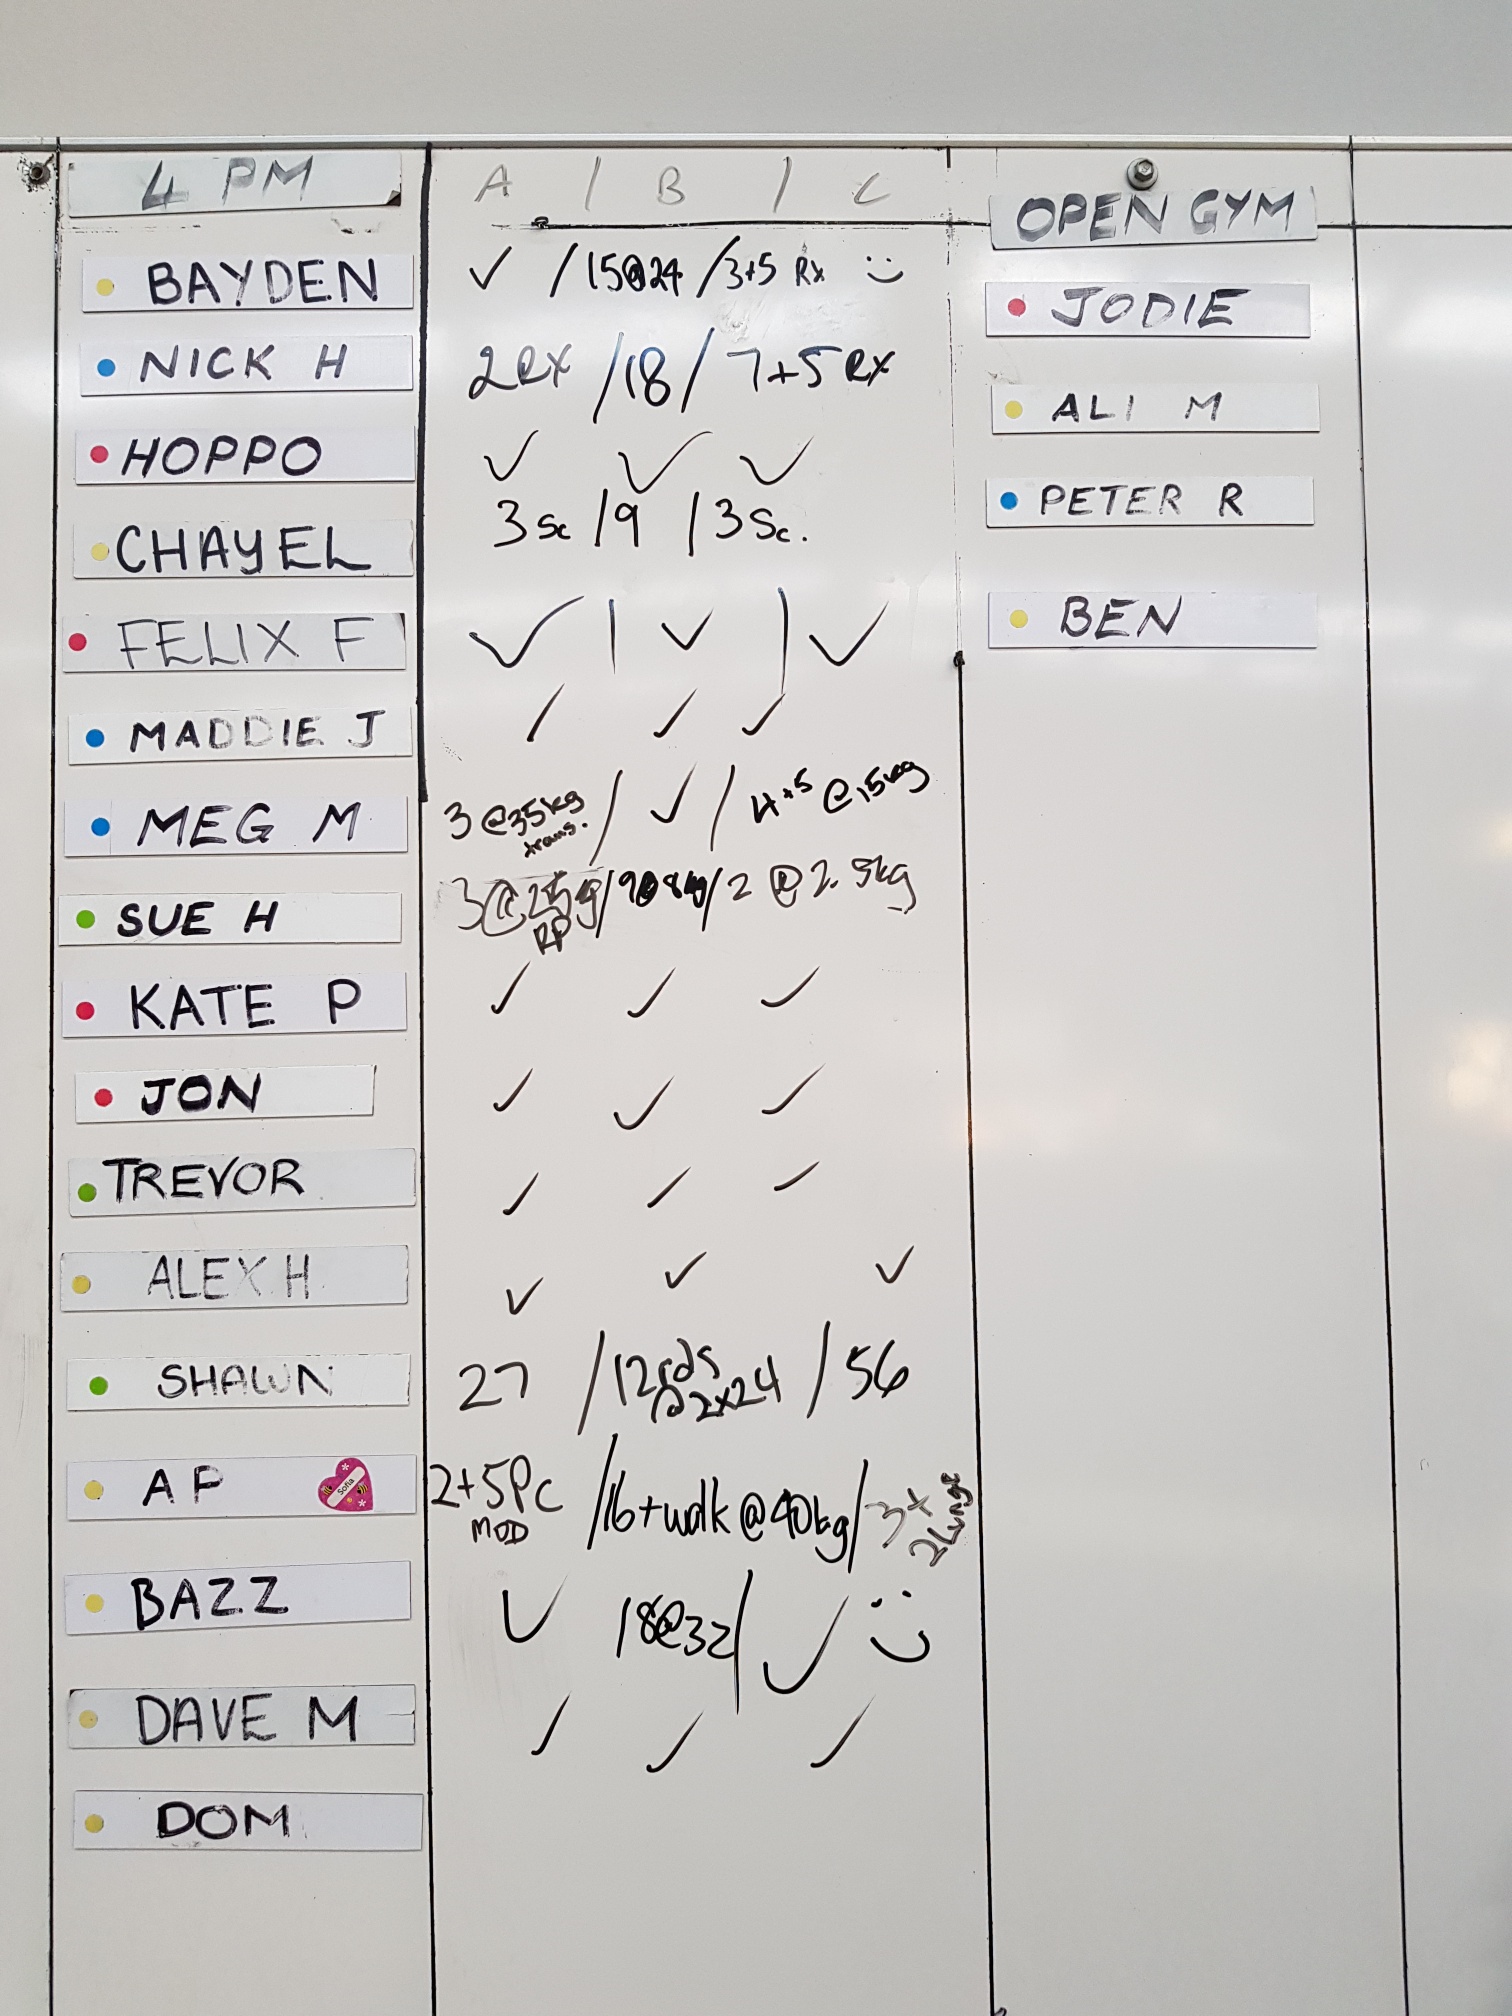 4 PM A / B / C OPEN GYM
BAYDEN ✓ / 15@24 / 3+5 Rx :)
JODIE
NICK H 2RX / 18 / 7+5 RX
ALI M
HOPPO ✓ ✓ ✓
PETER R
CHAYEL 3 Sc / 9 / 3 Sc.
BEN
FELIX F ✓ | ✓ | ✓
MADDIE J / ✓ ✓
MEG M 3 @35kg / ✓ / 4+5 @15kg
trans.
SUE H 3@ / 9@8kg / 2 @ 2.5kg
RP
KATE P ✓ ✓ ✓
JON ✓ ✓ ✓
TREVOR ✓ ✓ ✓
ALEX H ✓ ✓ ✓
SHAWN 27 / 12rds / 56
@2x24
AP Sofia 2+5PC / 16+walk @40kg / 3+
MOD 2Lunge
BAZZ ✓ 18@32 / ✓ :)
DAVE M ✓ ✓ ✓
DOM